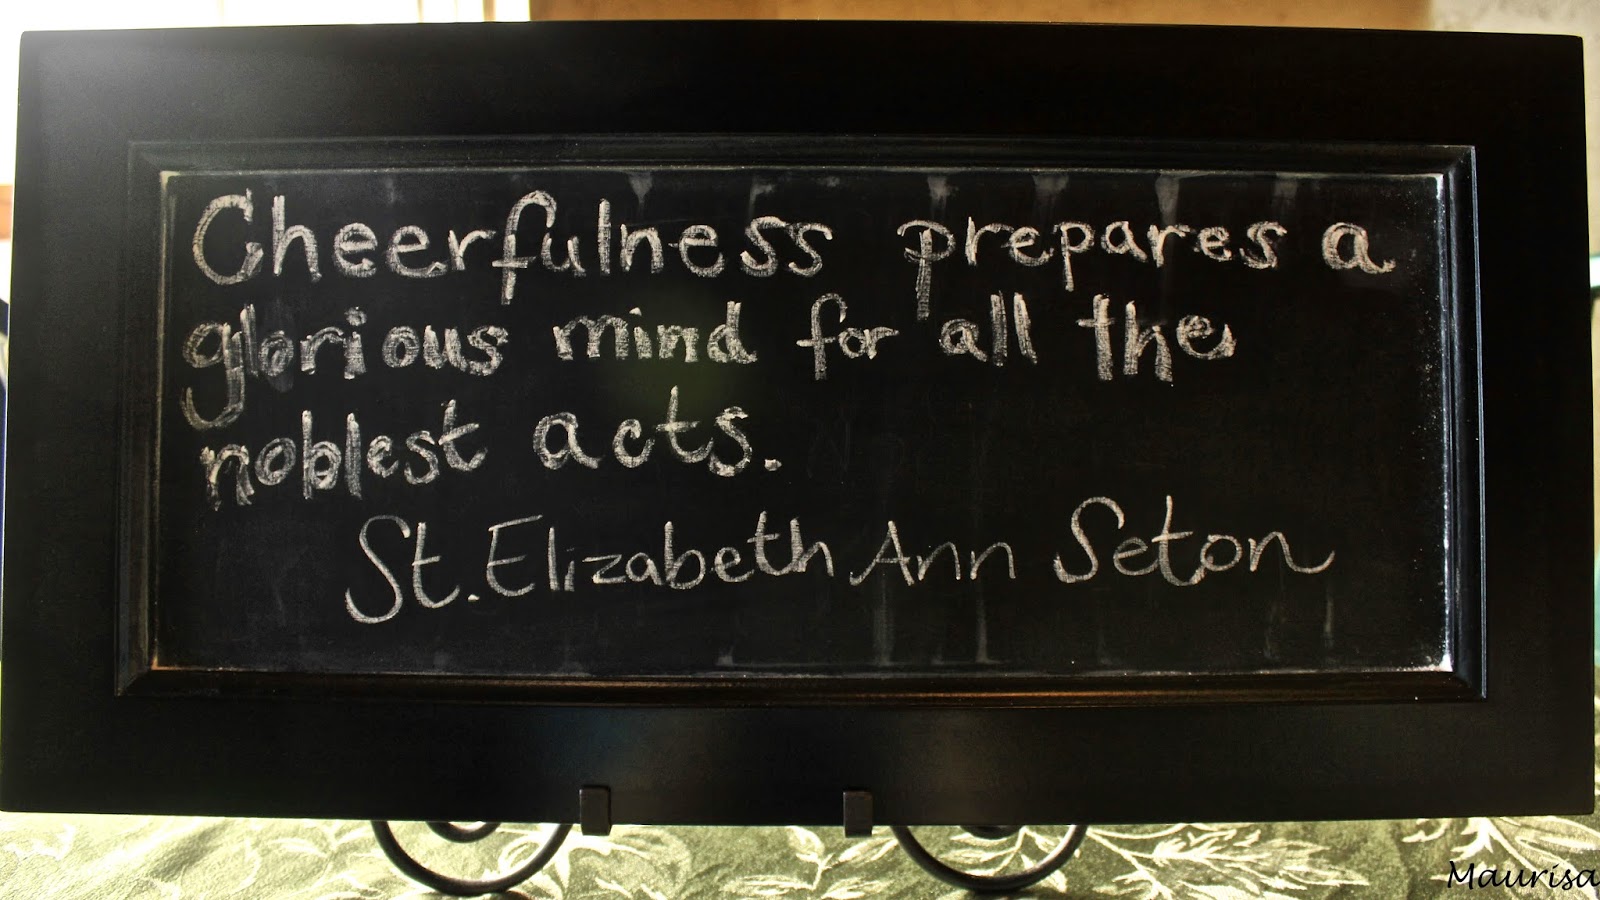 Cheerfulness prepares a
glorious mind for all the
noblest acts.
St. Elizabeth Ann Seton
Maurisa